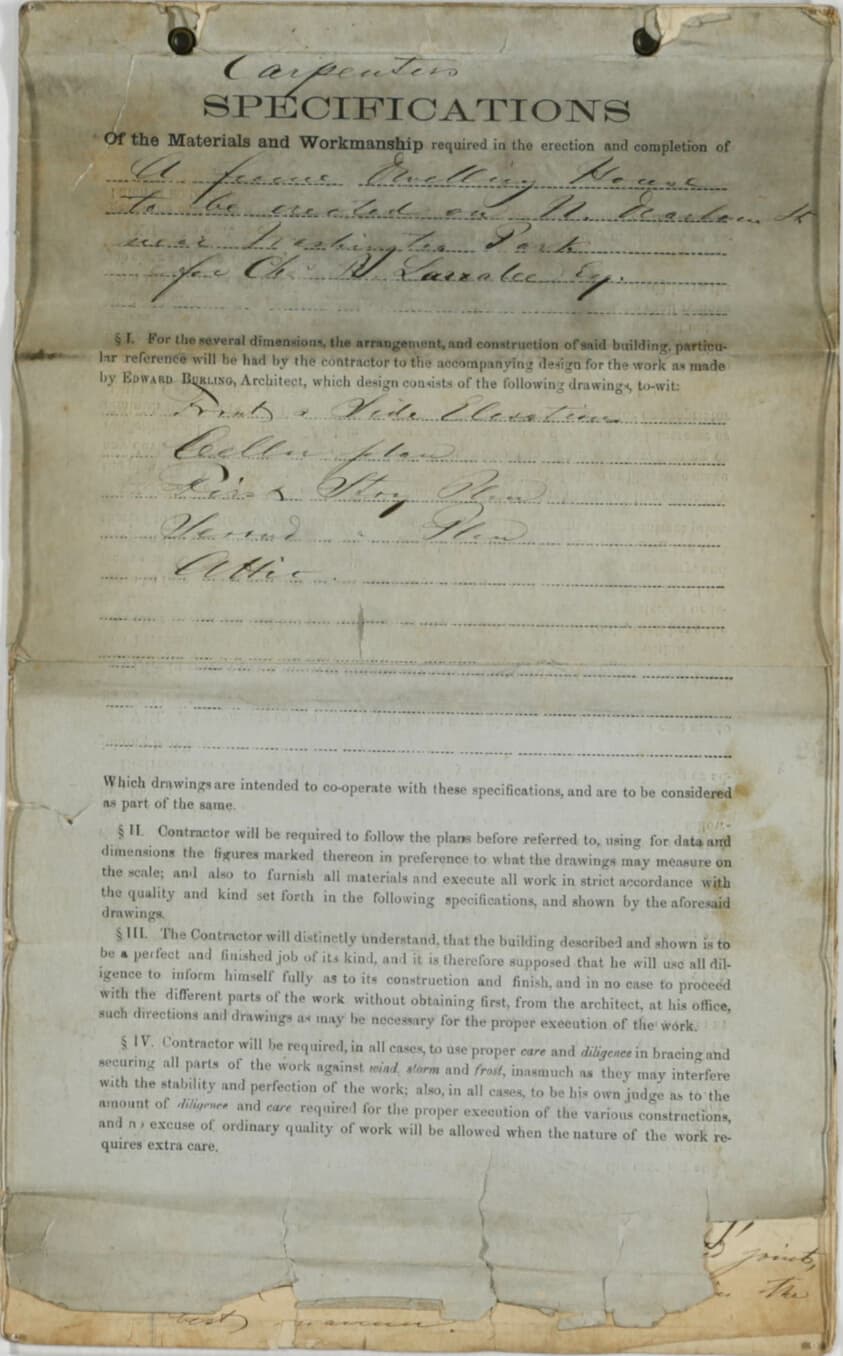 Carpenters
SPECIFICATIONS
Of the Materials and Workmanship required in the erection and completion of
A frame Dwelling House
to be erected on N. Dearborn St
near Washington Park
for Chs R. Larrabee Esq.
§ I. For the several dimensions, the arrangement, and construction of said building, particu-
lar reference will be had by the contractor to the accompanying design for the work as made
by EDWARD BURLING, Architect, which design consists of the following drawings, to-wit:
Front & Side Elevations
Celler plan
First Story Plan
Second " Plan
Attic
Which drawings are intended to co-operate with these specifications, and are to be considered
as part of the same.
§ II. Contractor will be required to follow the plans before referred to, using for data and
dimensions the figures marked thereon in preference to what the drawings may measure on
the scale; and also to furnish all materials and execute all work in strict accordance with
the quality and kind set forth in the following specifications, and shown by the aforesaid
drawings.
§ III. The Contractor will distinctly understand, that the building described and shown is to
be a perfect and finished job of its kind, and it is therefore supposed that he will use all dil-
igence to inform himself fully as to its construction and finish, and in no case to proceed
with the different parts of the work without obtaining first, from the architect, at his office,
such directions and drawings as may be necessary for the proper execution of the work.
§ IV. Contractor will be required, in all cases, to use proper care and diligence in bracing and
securing all parts of the work against wind, storm and frost, inasmuch as they may interfere
with the stability and perfection of the work; also, in all cases, to be his own judge as to the
amount of diligence and care required for the proper execution of the various constructions,
and no excuse of ordinary quality of work will be allowed when the nature of the work re-
quires extra care.
joints,
in the
best manner.